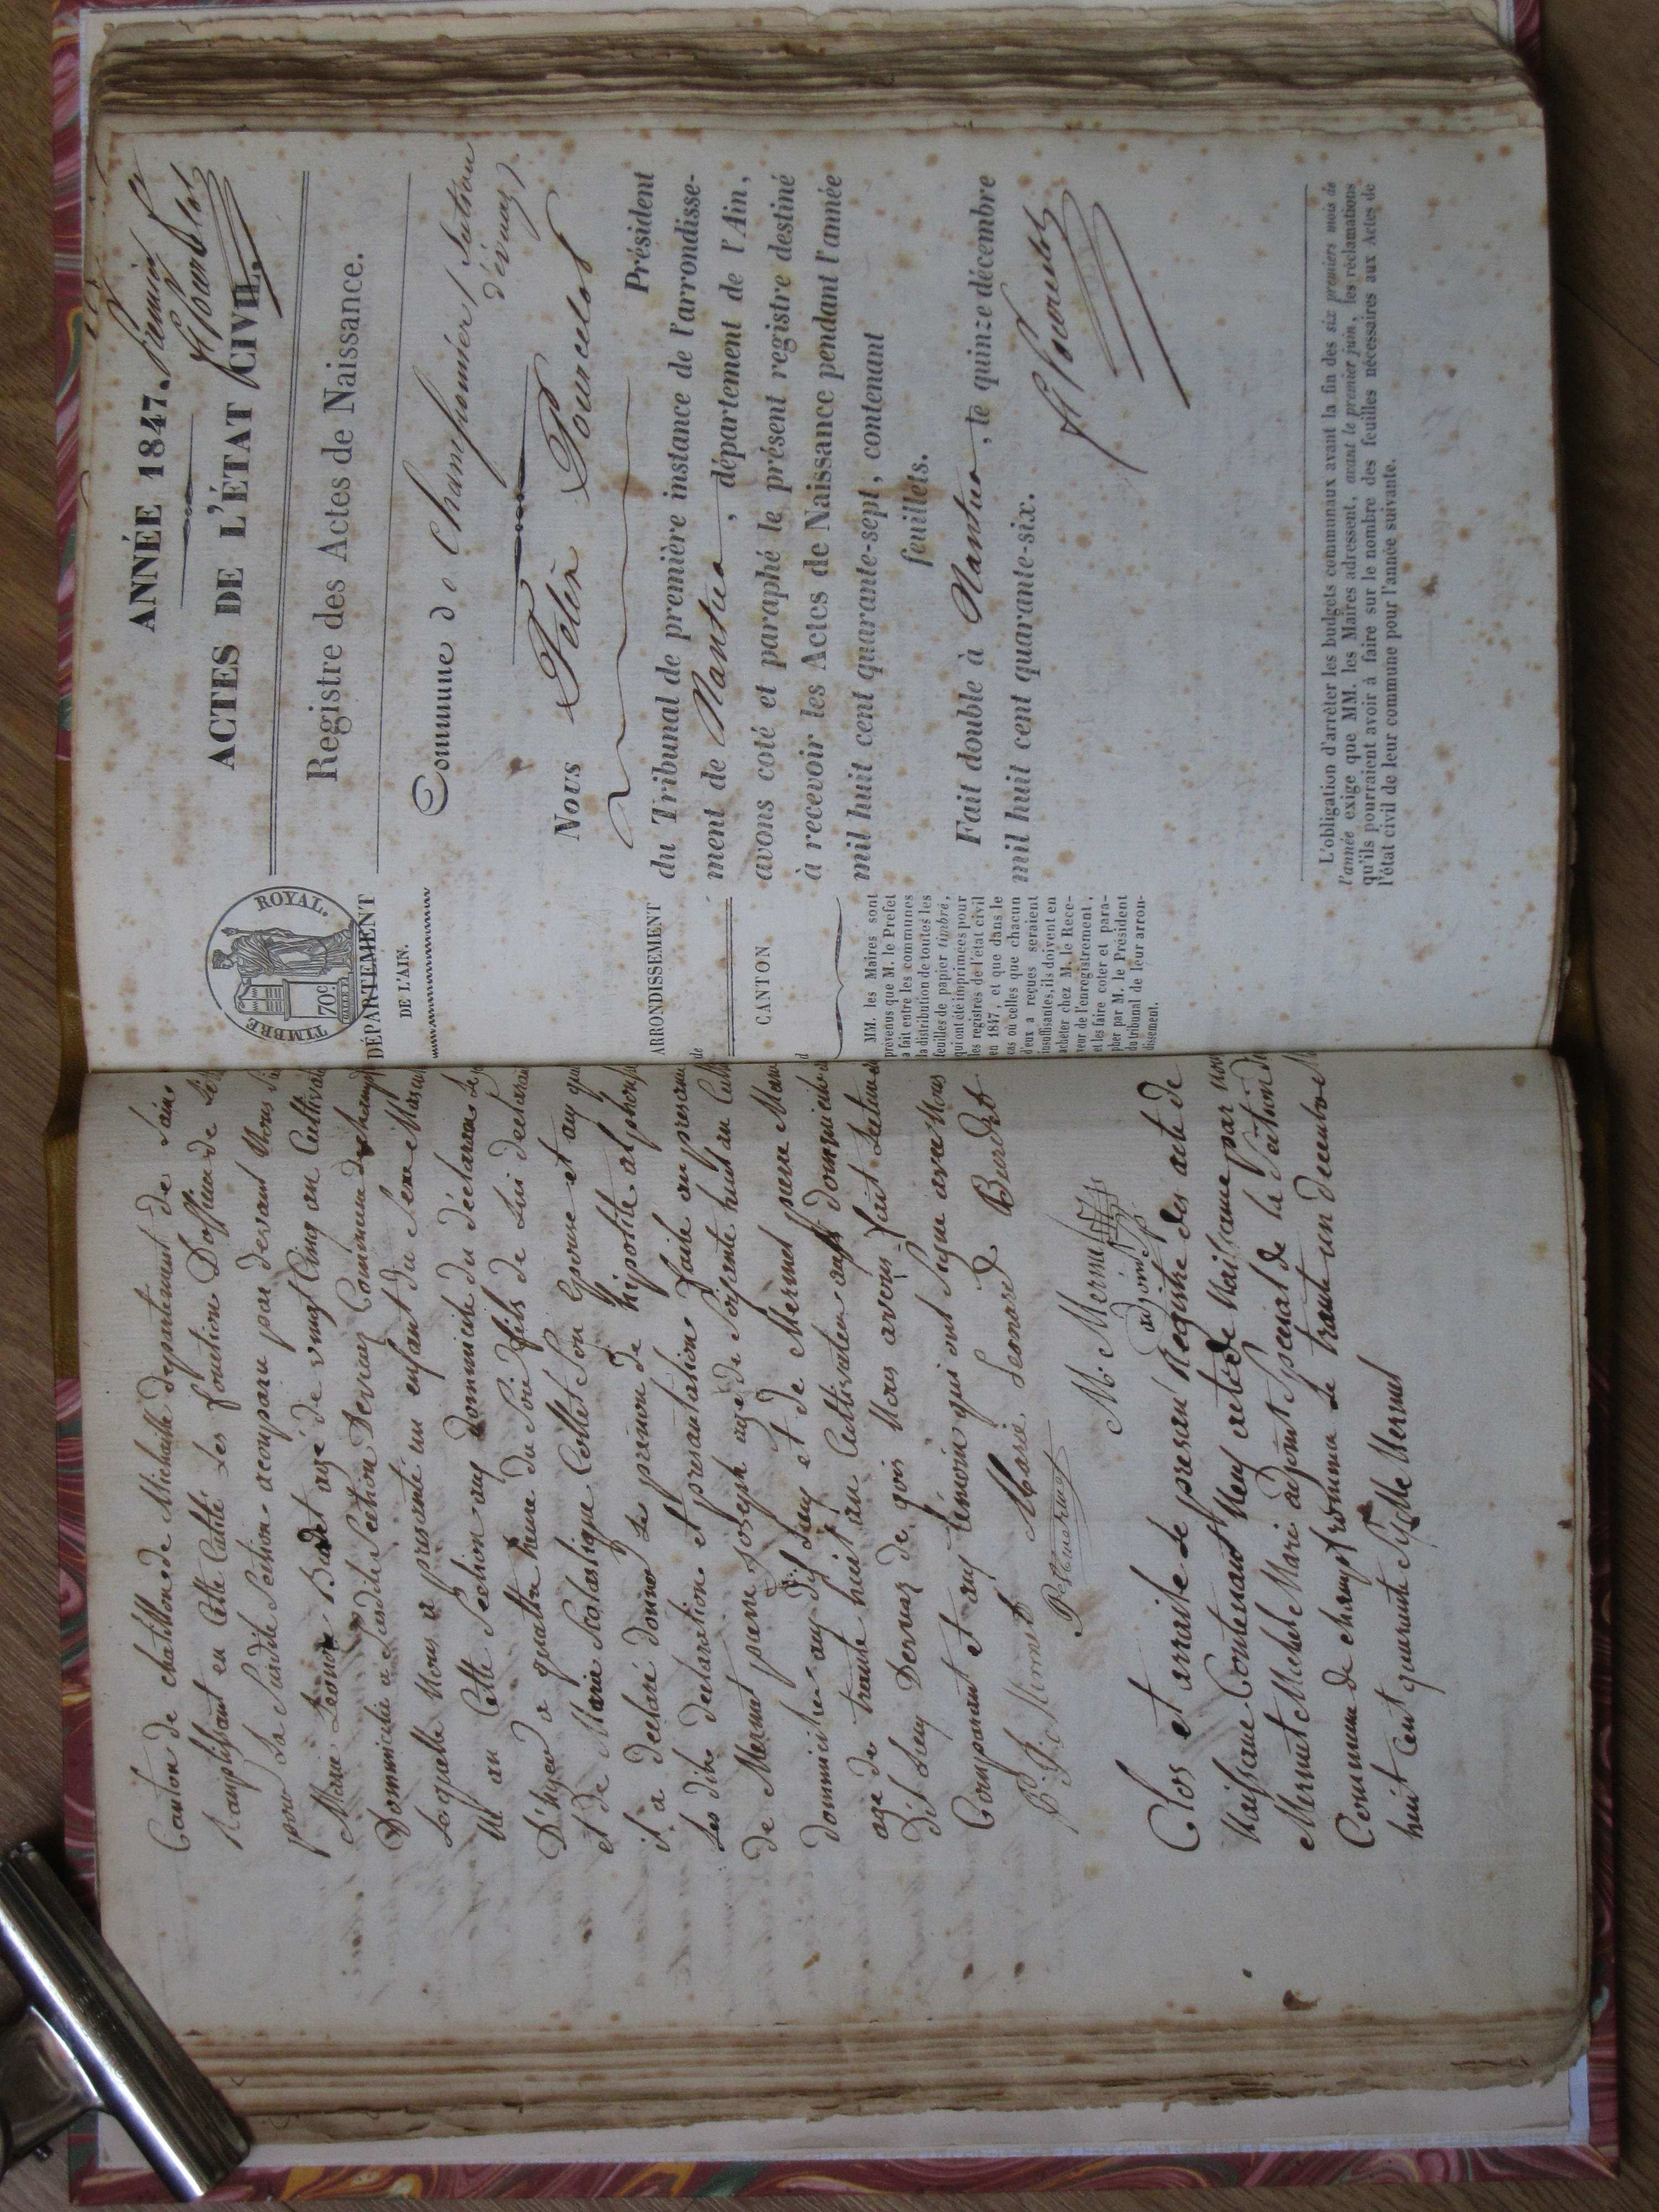 Canton de chatillon de Michaille departement de Lain
Ramplissant en Cette Calité Les fonction Dofficier de
pour La Susdite Section - acomparu par devant Nous
Marie Leonard Burdet agé de vingt Cinq an
Dommicilié a Susdite Section Dervaz Commune de
Lequelle Nous a presenté un enfant du Sexe
Né an Cette Section aux Dommicile du déclarans
D'hyer a quattre heure du Soir fils de Lui declarant
et de Marie Scolastique Collet Son Epouse et auquel
il a declaré donner Le prénom de hipolite alphonse
Les dite declaration et presantation faite au presance
de Mermet pierre joseph agé de Soisante huit an
Dommicilier aux dit Lieu et de Mermet
age de trante huit an Cultivateur aussi
Dit Lieu Dervaz de quoi Nous avons fait
Comparant et aux témoin qui ont Signé avec Nous
P. J. Mermet Marie Leonard Burdet
Mermet
M. Mermet
adjoint
Clos et arraité Le present Registre des acte de
Naissance Contenant Neuf acte de Naissance par nous
Mermet Michel Marie adjoint Special de la Section
Commune de champfromier Le trante un Decembre
huit Cent quarante Six M Mermet
ANNÉE 1847.
Premier
ACTES DE L'ÉTAT CIVIL.
Registre des Actes de Naissance.
TIMBRE ROYAL.
70c.
DÉPARTEMENT
DE L'AIN.
Commune de Champfromier Section
d'évuaz
ARRONDISSEMENT
de
CANTON
d
MM. les Maires sont
prévenus que M. le Prefet
a fait entre les communes
la distribution de toutes les
feuilles de papier timbré,
qui ont été imprimées pour
les registres de l'état civil
en 1847, et que dans le
cas où celles que chacun
d'eux a reçues seraient
insuffisantes, ils doivent en
acheter chez M. le Rece-
veur de l'enregistrement,
et les faire coter et para-
pher par M. le Président
du tribunal de leur arron-
dissement.
Nous Pourcelot
Président
du Tribunal de première instance de l'arrondisse-
ment de Nantua, département de l'Ain,
avons coté et paraphé le présent registre destiné
à recevoir les Actes de Naissance pendant l'année
mil huit cent quarante-sept, contenant
feuillets.
Fait double à Nantua, le quinze décembre
mil huit cent quarante-six.
L'obligation d'arrêter les budgets communaux avant la fin des six premiers mois de
l'année exige que MM. les Maires adressent, avant le premier juin, les réclamations
qu'ils pourraient avoir à faire sur le nombre des feuilles nécessaires aux Actes de
l'état civil de leur commune pour l'année suivante.